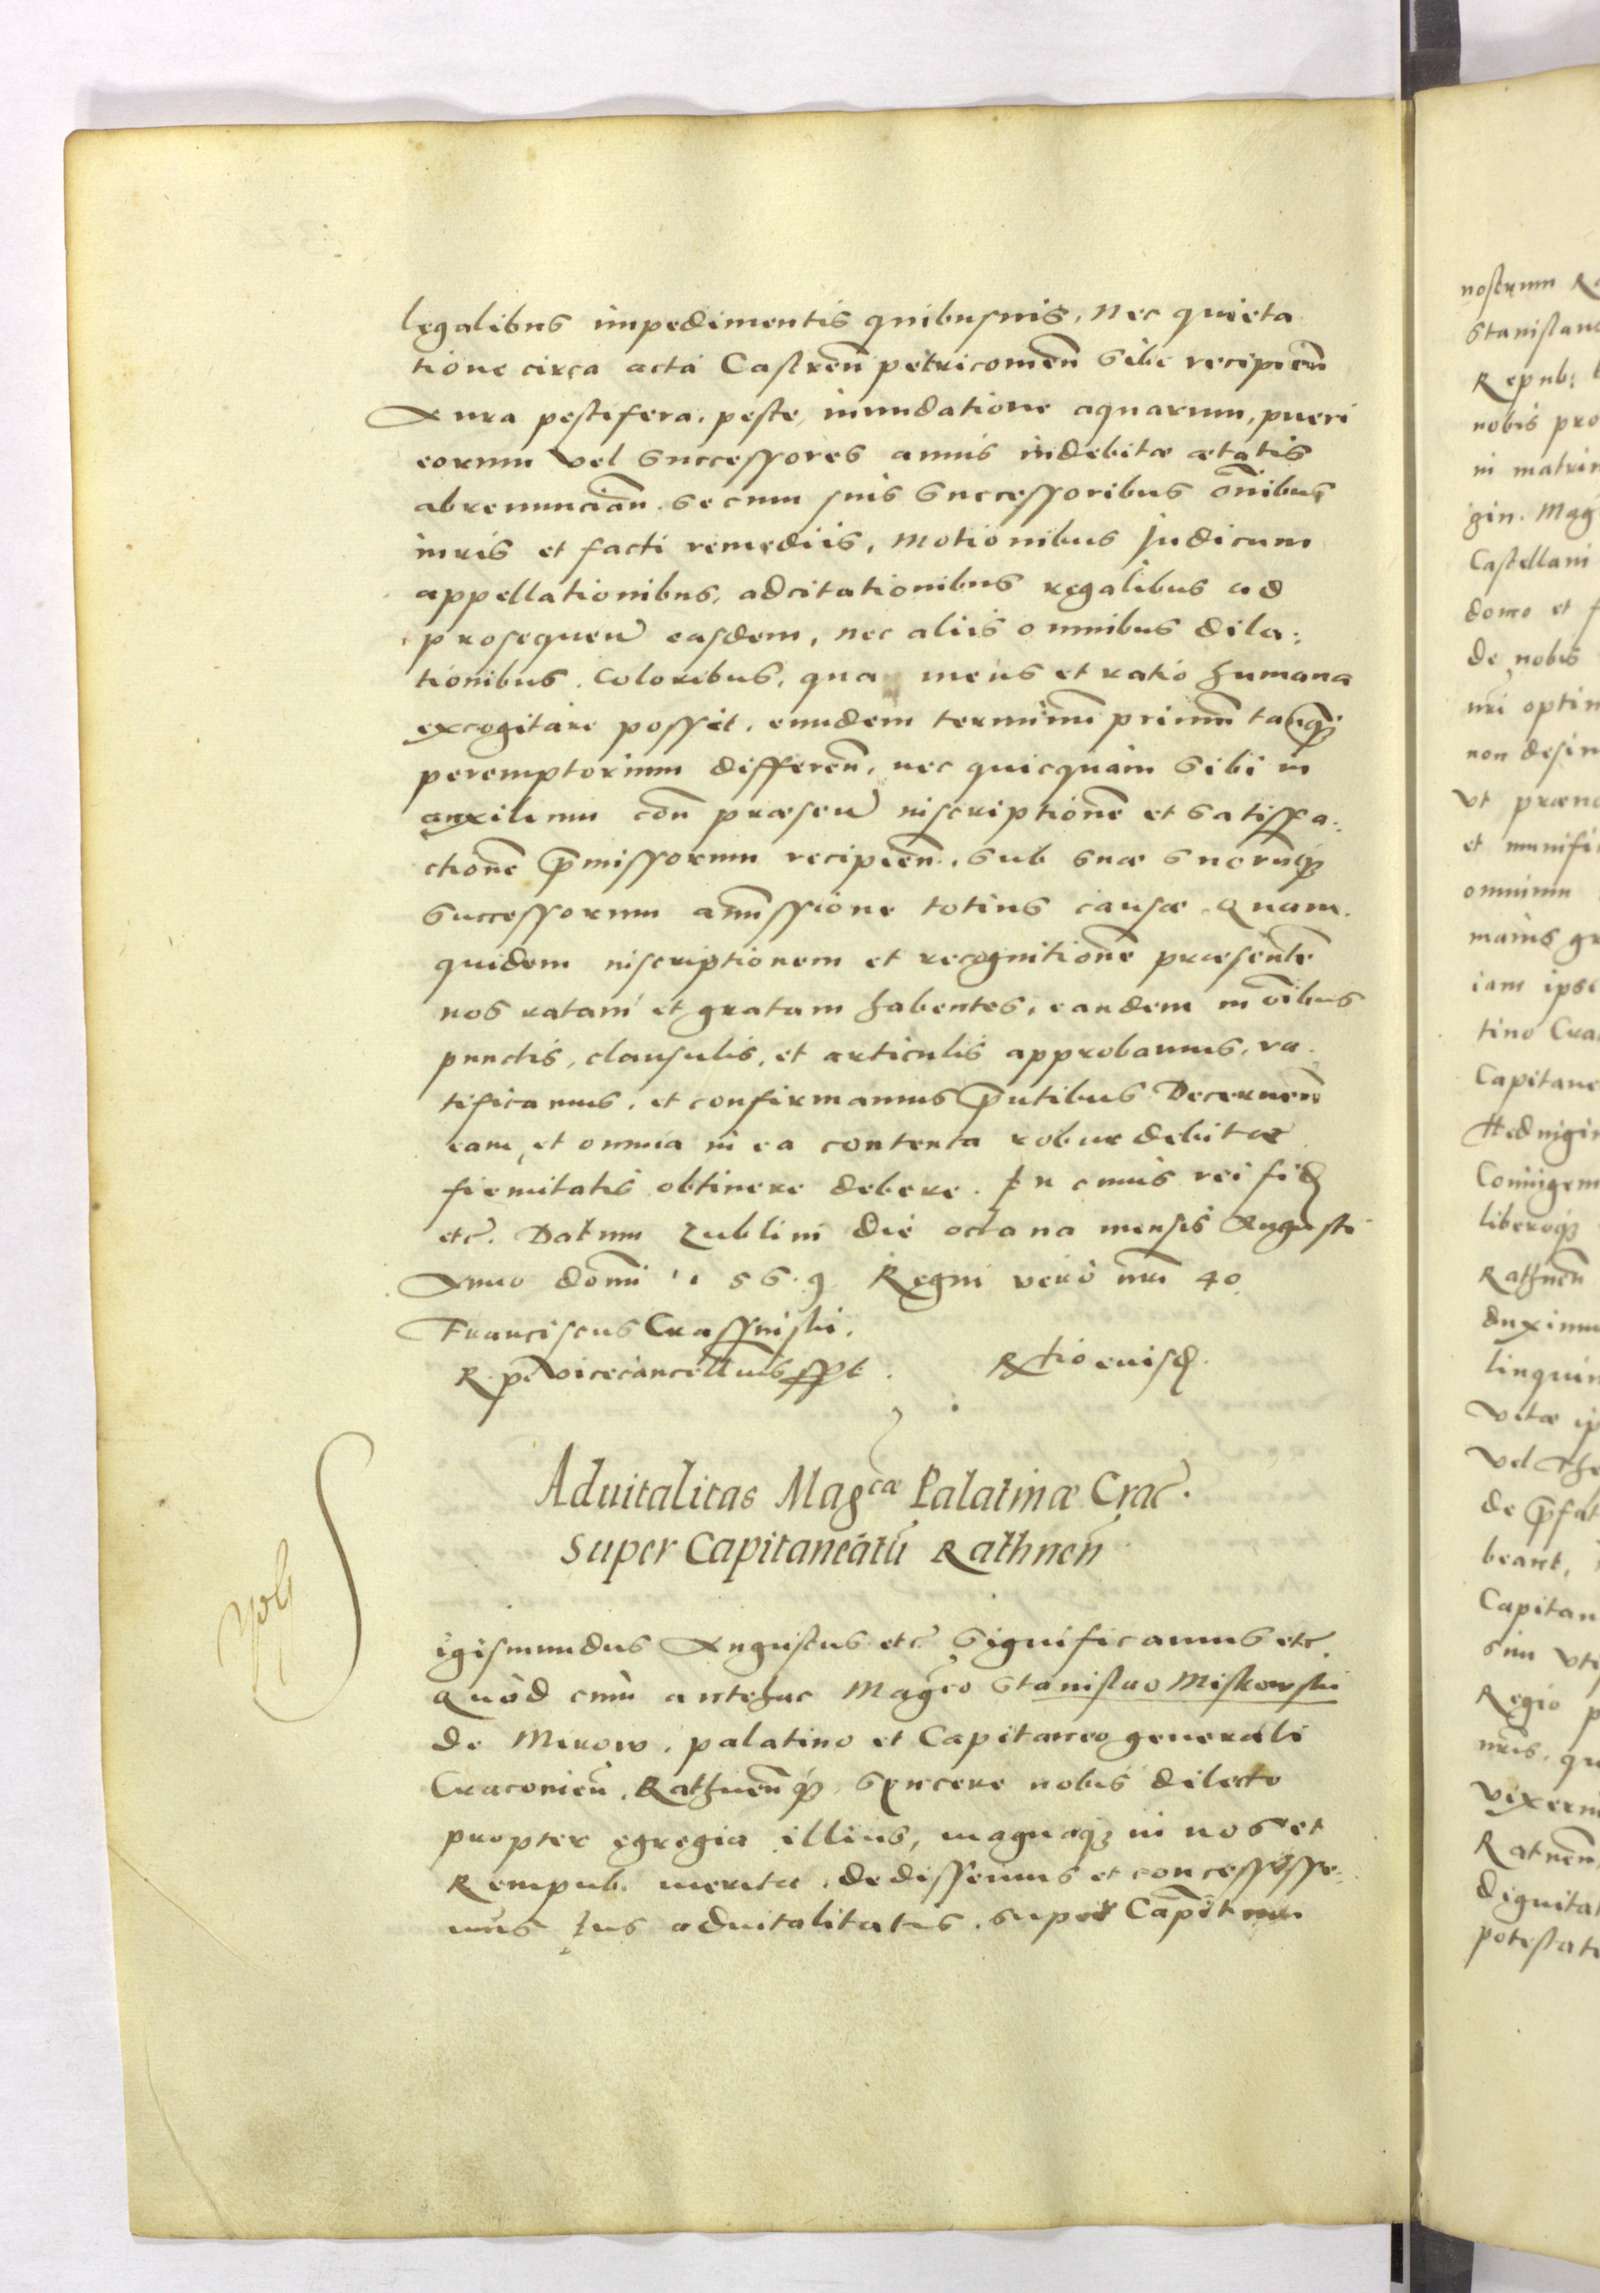 legalibus impedimentis quibusuis, nec quieta
tione circa acta Castreñ petricouieñ sibi recipieñ
Aura pestifera, peste, inundatione aquarum, pueri
eorum vel successores annis indebitæ ætatis
abrenuncian̄ secum suis successoribus om̄ibus
iuris et facti remediis, motionibus Judicum
appellationibus, adcitationibus regalibus ad
prosequeñ easdem, nec aliis omnibus dila:
tionibus, coloribus, qua mens et ratio humana
excogitare possit, eundem terminum primum tanq̃
peremptorium differeñ, nec quicquam sibi in
auxilium con̄ præseñ inscriptionē et satisfa:
ctionē p̄missorum recipieñ, sub suæ suorumq₃
successorum amissione totius causæ. Quam
quidem inscriptionem et recognitionē præsentē
nos ratam et gratam habentes, eandem in oībus
punctis, clausulis, et articulis approbamus, ra
tificamus, et confirmamus p̄ntibus Decerneñ
eam, et omnia in ea contenta robur debitæ
firmitatis obtinere debere. In cuius rei fid
etc. Datum Lublini die octaua mensis Augusti
Anno domi 1569 Regni verò nr̄i 40.
Franciscus Crassinski.
R. p. vicecancellarius sspt. Rtio eiusd.
Aduitalitas Mag^cæ Palatinæ Crac.
super Capitaneatū Rathneñ
S
igismundus Augustus etc Significamus etc.
Quòd cùm antehac Mag̃co Stanislao Miskowski
de Mirow, palatino et Capitaneo generali
Cracouieñ, Rathneñq₃, syncere nobis dilecto
propter egregia illius, magnaq₃ in nos et
Rempub. merita, dedissemus et concessisse:
mus Jus aduitalitatis, super Capitneu
nostrum Ra
Stanislaus
Repub:
nobis pro
in matrim
gin. Mag
Castellani
domo et f
de nobis
nr̄i optim
non desin
vt præno
et munifi
omnium
maius gr
iam ipse
tino Cra
Capitane
Hedvigin
Coniugem
liberosq₃
Rathneñ
duximu
linquim
Vitæ ip
vel
de p̄fat
beant,
Capitan
sim vti
Regio p
nr̄is, qu
vixerin
Ratneñ
dignitat
potestati